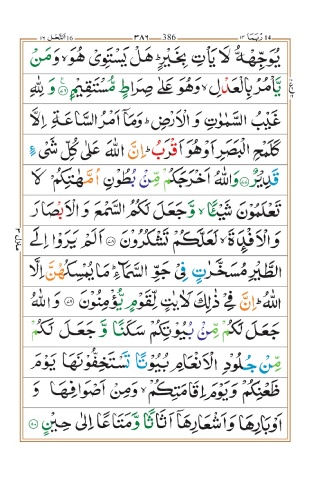 ربما ١٤ 386 ٣٨٦ النحل 16
يُوَجِّهْهُّ لَا يَاْتِ بِخَيْرٍؕ هَلْ يَسْتَوِيْ هُوَۙ وَ مَنْ
يَّاْمُرُ بِالْعَدْلِۙ وَهُوَ عَلٰى صِرَاطٍ مُّسْتَقِيْمٍ۠ ﴿۷۶﴾ وَ لِلّٰهِ
غَيْبُ السَّمٰوٰتِ وَ الْاَرْضِؕ وَمَاۤ اَمْرُ السَّاعَةِ اِلَّا
كَلَمْحِ الْبَصَرِ اَوْ هُوَ اَقْرَبُؕ اِنَّ اللّٰهَ عَلٰى كُلِّ شَيْءٍ
قَدِيْرٌ ﴿۷۷﴾ وَاللّٰهُ اَخْرَجَكُمْ مِّنْۢ بُطُوْنِ اُمَّهٰتِكُمْ لَا
تَعْلَمُوْنَ شَيْـًٔاۙ وَّ جَعَلَ لَكُمُ السَّمْعَ وَ الْاَبْصَارَ
وَ الْاَفْـِٕدَةَۙ لَعَلَّكُمْ تَشْكُرُوْنَ ﴿۷۸﴾ اَلَمْ يَرَوْا اِلَى
الطَّيْرِ مُسَخَّرٰتٍ فِيْ جَوِّ السَّمَآءِؕ مَا يُمْسِكُهُنَّ اِلَّا
اللّٰهُؕ اِنَّ فِيْ ذٰلِكَ لَاٰيٰتٍ لِّقَوْمٍ يُّؤْمِنُوْنَ ﴿۷۹﴾ وَ اللّٰهُ
جَعَلَ لَكُمْ مِّنْۢ بُيُوْتِكُمْ سَكَنًا وَّ جَعَلَ لَكُمْ
مِّنْ جُلُوْدِ الْاَنْعَامِ بُيُوْتًا تَسْتَخِفُّوْنَهَا يَوْمَ
ظَعْنِكُمْ وَ يَوْمَ اِقَامَتِكُمْۙ وَ مِنْ اَصْوَافِهَا وَ
اَوْبَارِهَا وَ اَشْعَارِهَاۤ اَثَاثًا وَّ مَتَاعًا اِلٰى حِيْنٍ ﴿۸۰﴾